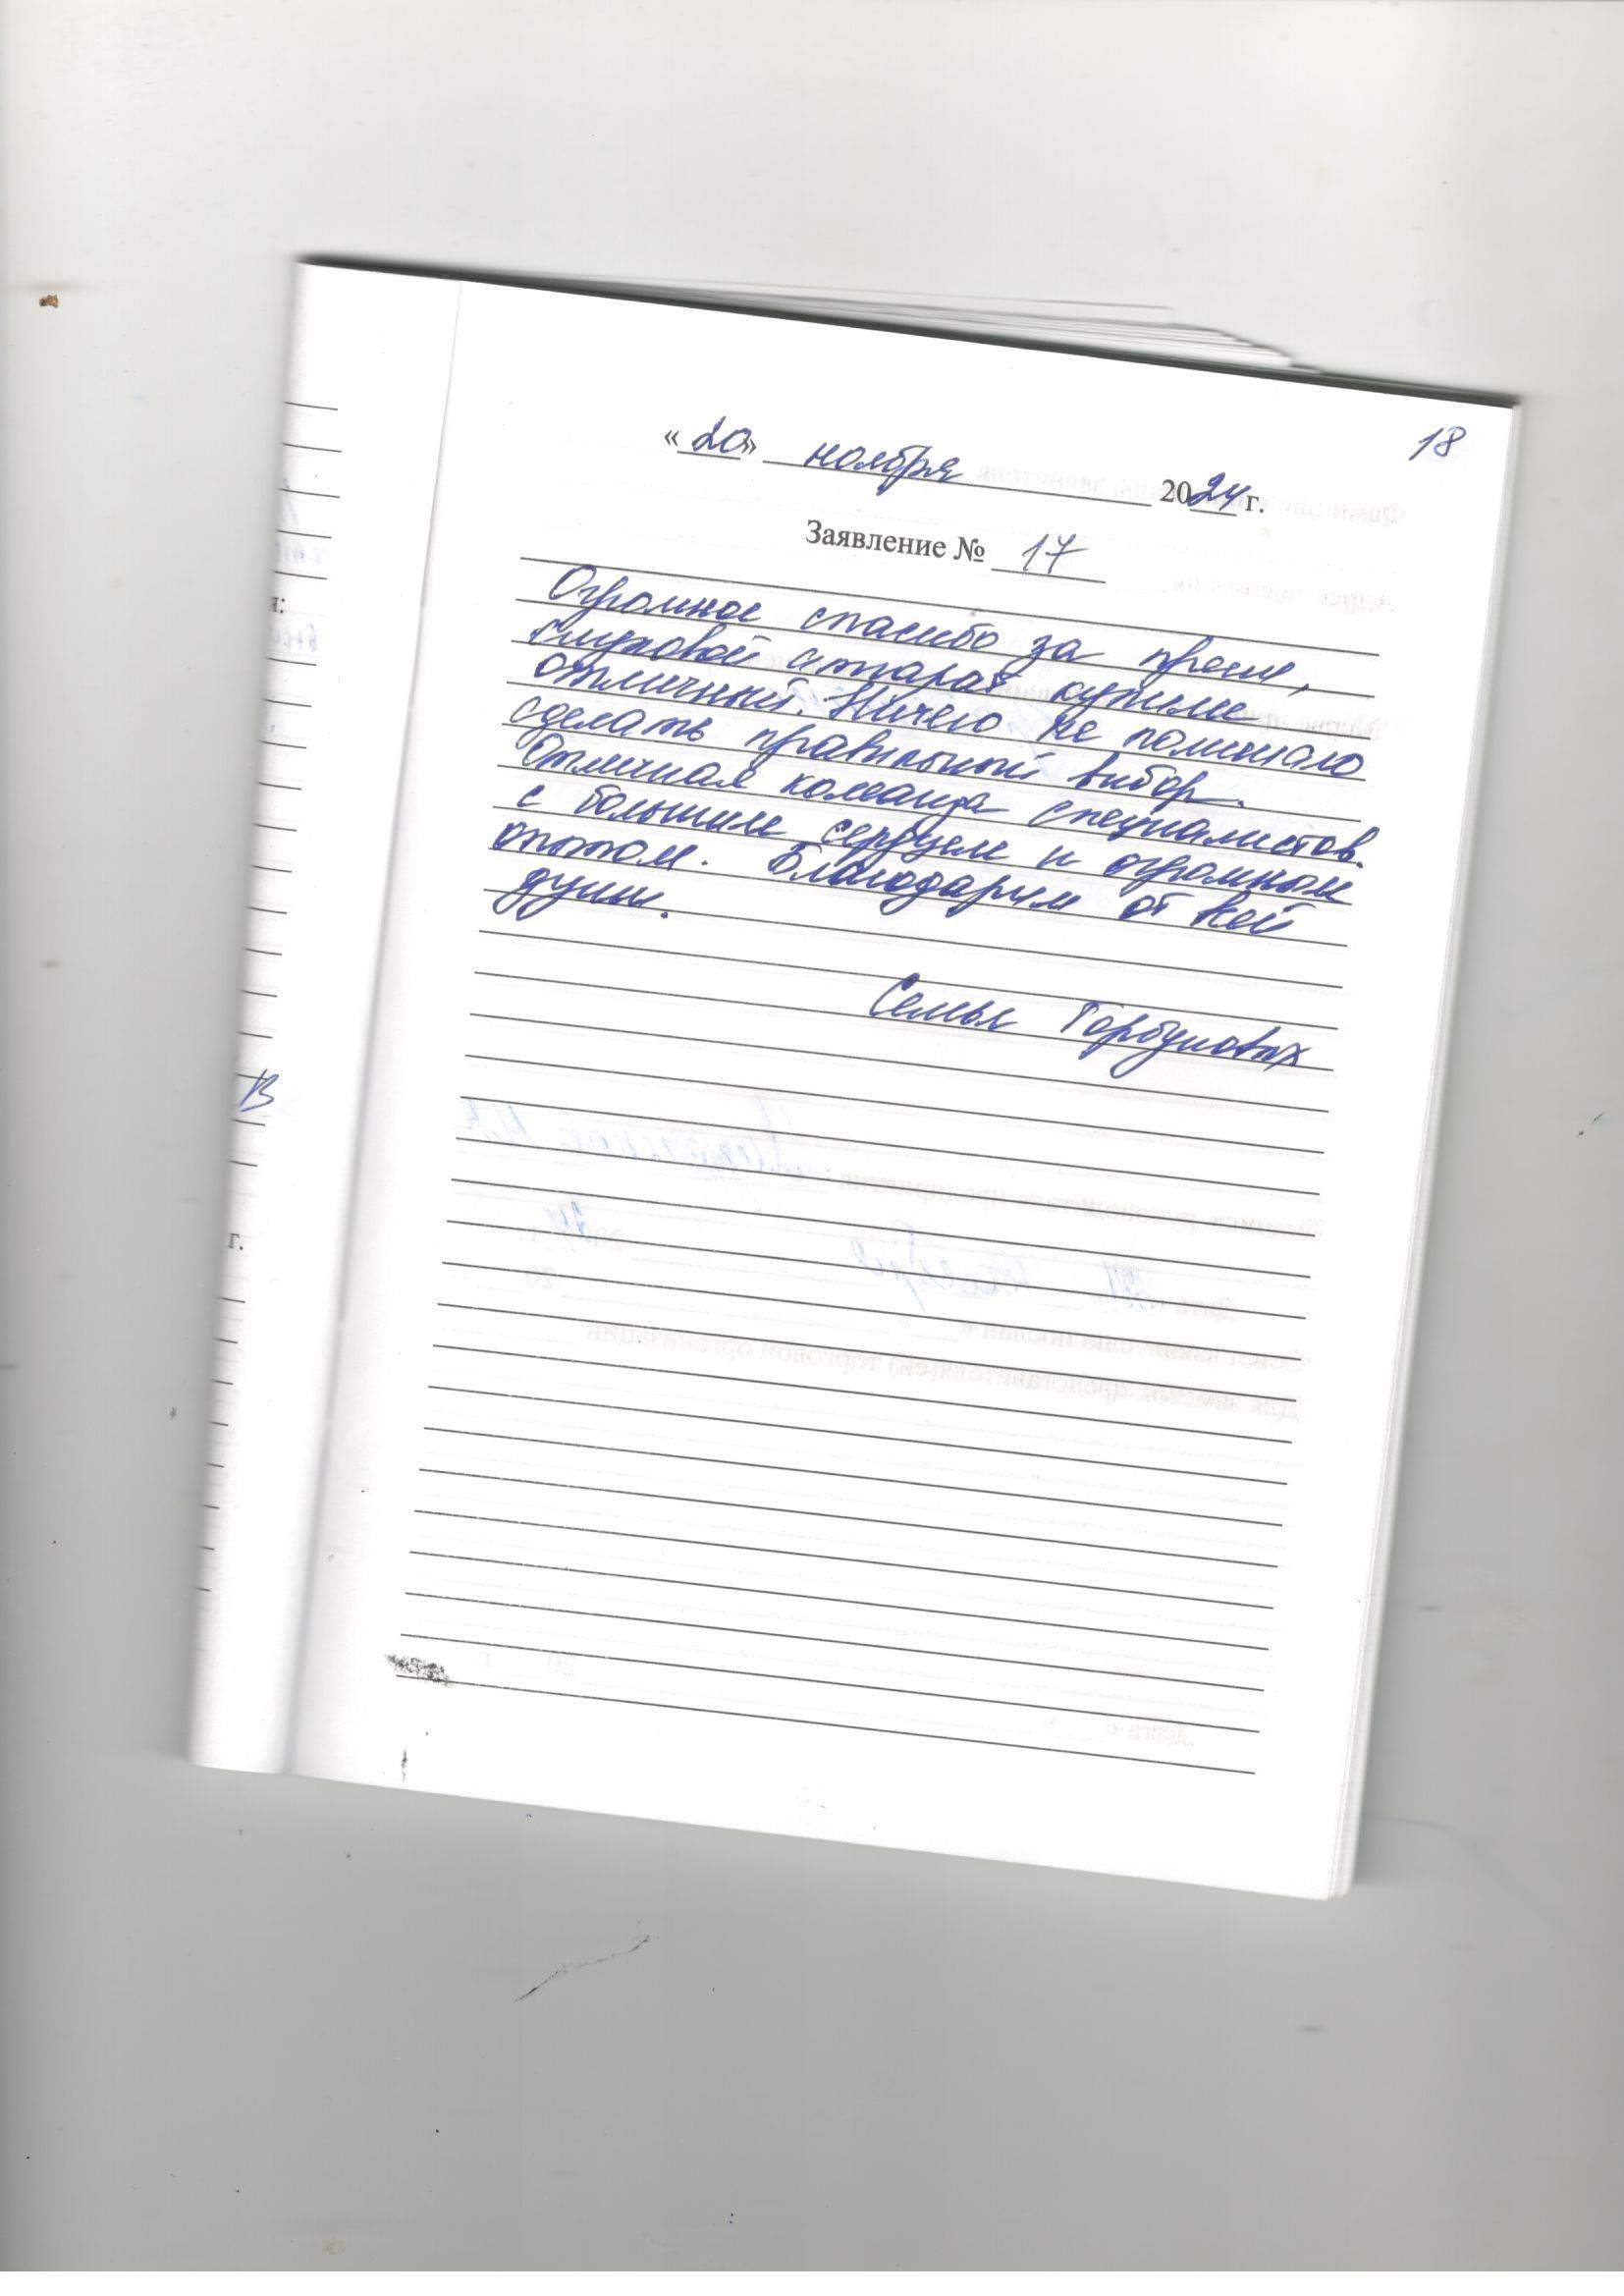 18
«20» ноября 2024 г.
Заявление № 17
Огромное спасибо за прием,
слуховой аппарат купили
отличный. Ничего не помешало
сделать правильный выбор.
Отличная команда специалистов.
с большим сердцем и огромным
опытом. Благодарим от всей
души.
Семья Горбуновых
В
г.